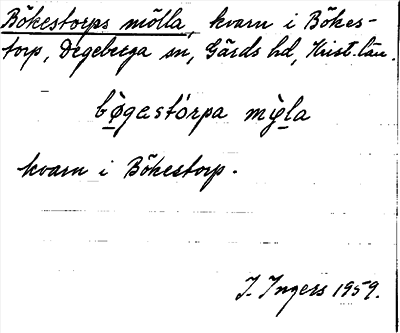 Bökestorps mölla, kvarn i Bökes-
torp, Degeberga sn, Gärds hd, Krist. län.
bø̀gastórpa mỳla
kvarn i Bökestorp.
I. Ingers 1959.